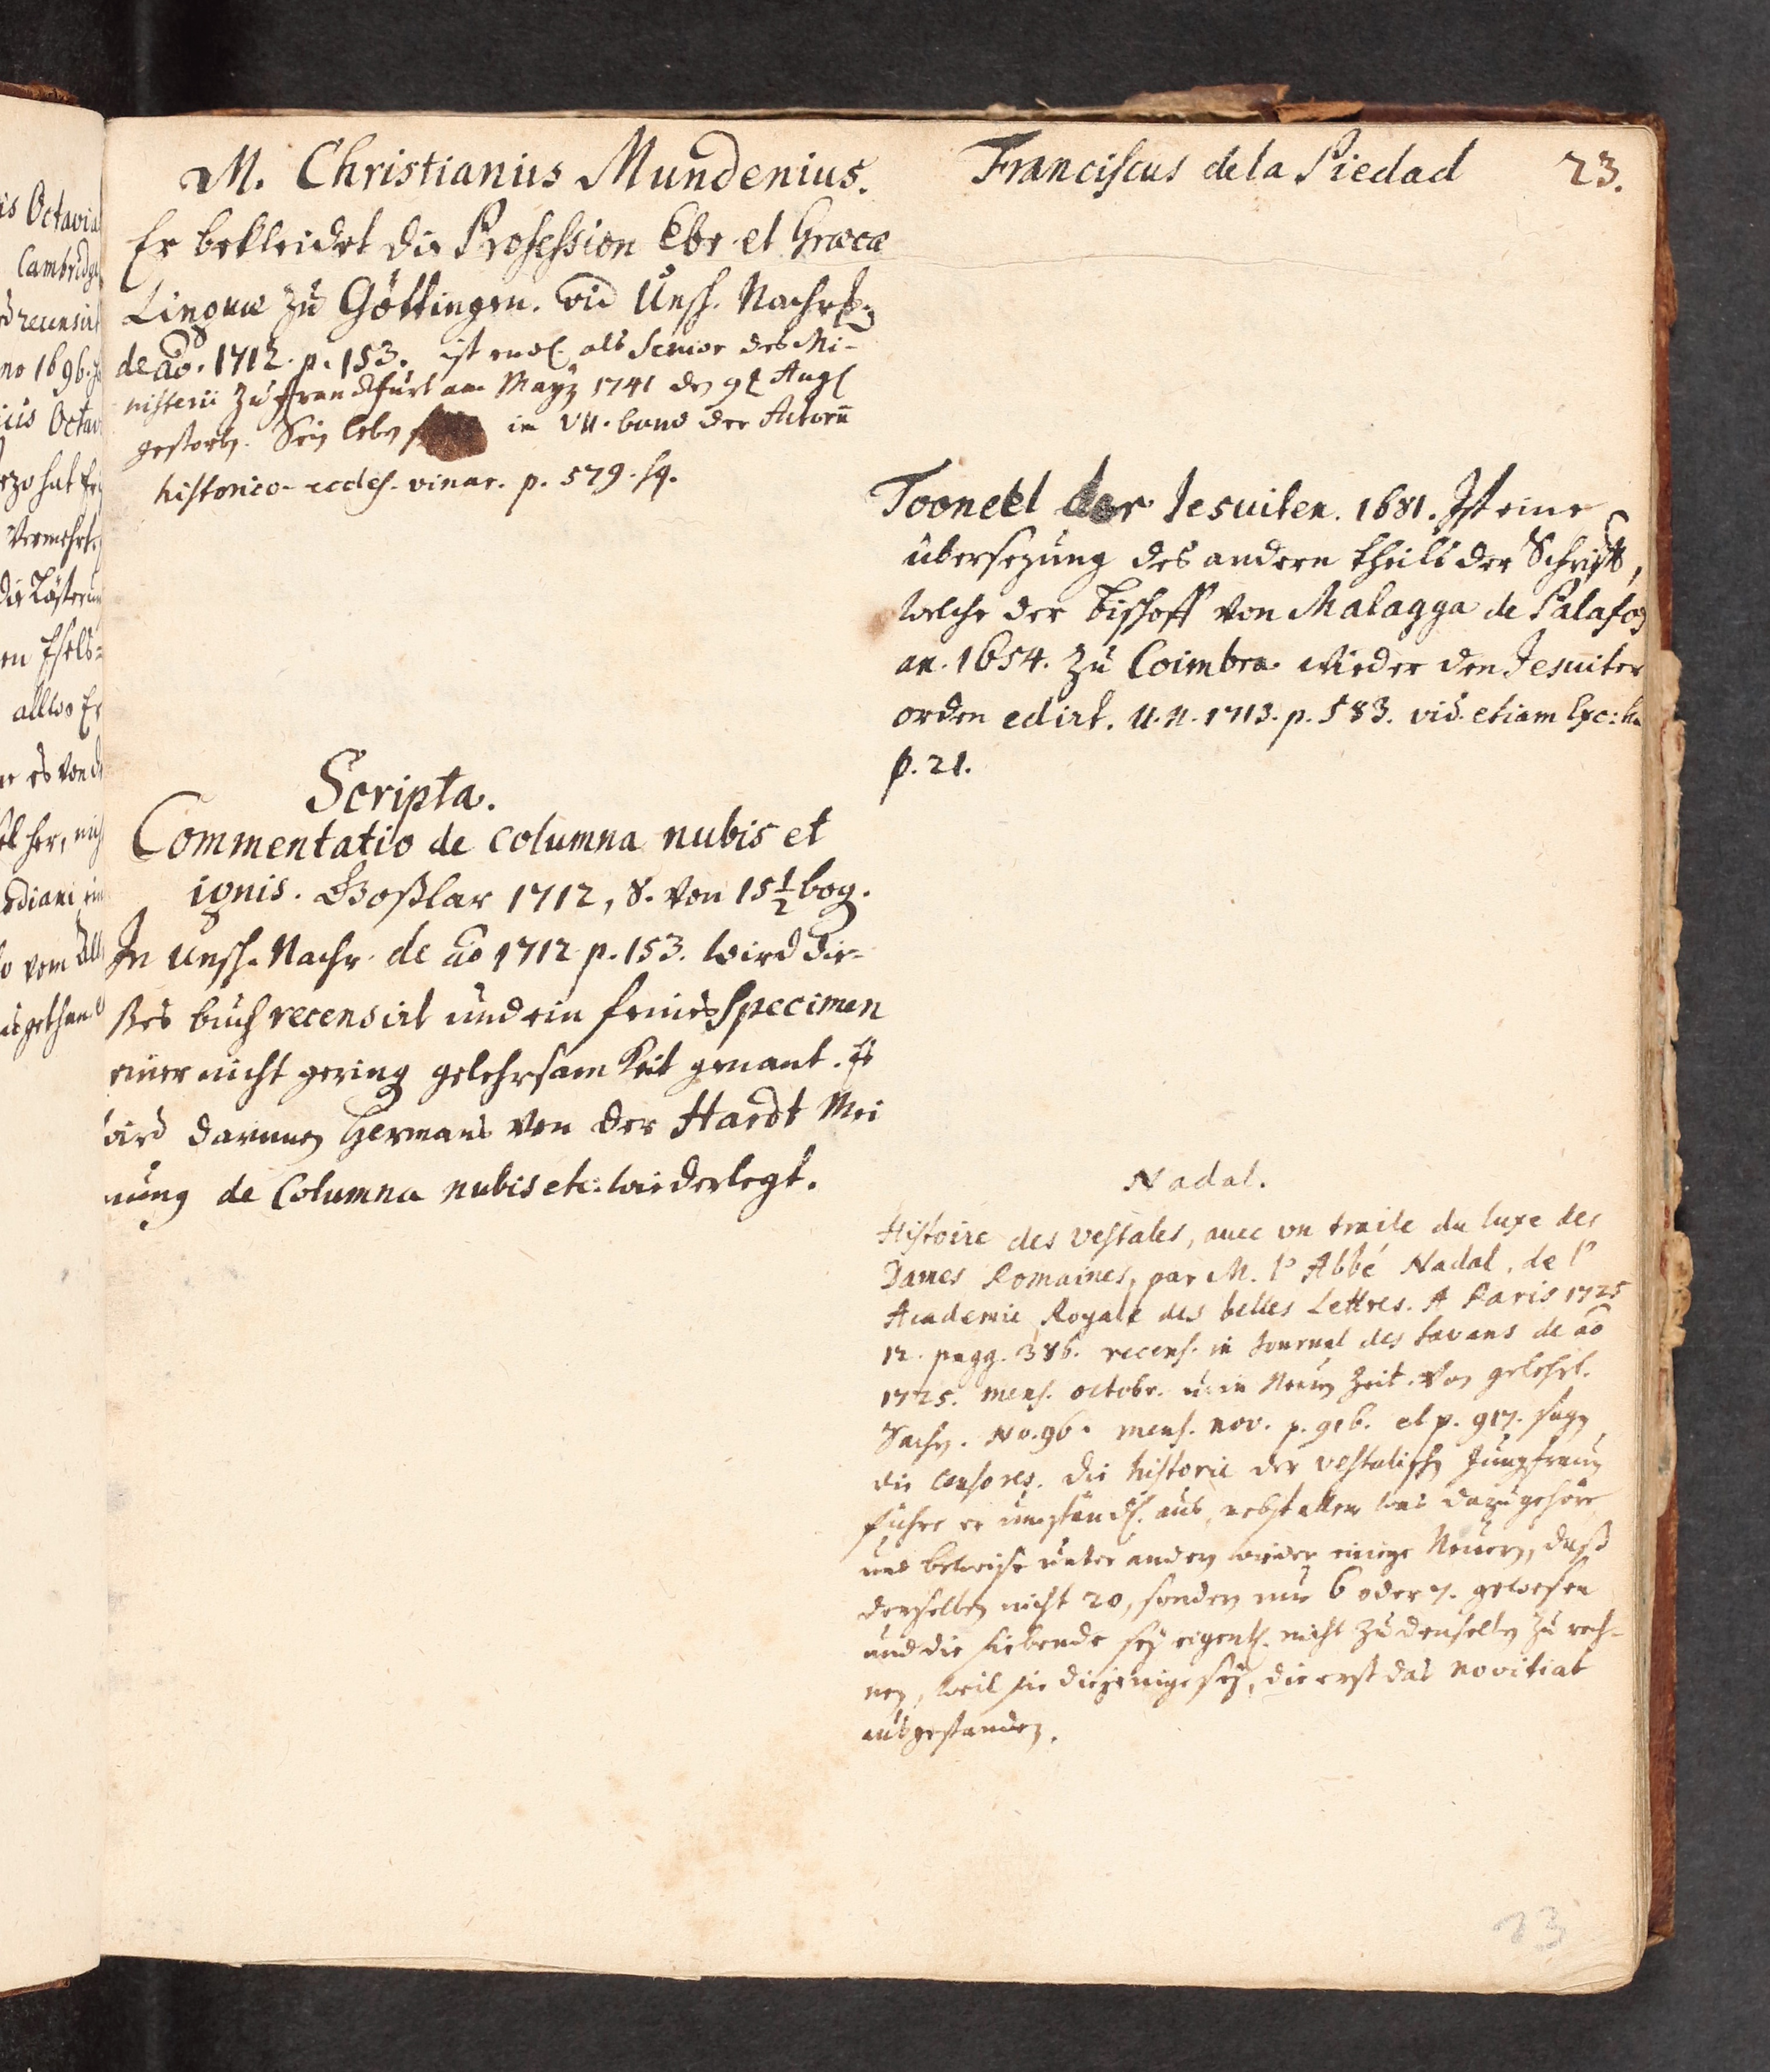 M. Christianus Mundenius.
Er bekleidet die Profession Ebr. et Græcæ
Linguæ zu Göttingen. vid Unsch. Nachrt.
de ao. 1712. p. 153. ist endl. als Senior des Mi-
nisterii zu Franckfurt am Mayn 1741 den 9t Aug
gestorben. Sein leben im VII. band der Actorum
historico-eccles. vinar. p. 579. sq.
Scripta.
Commentatio de columna nubis et
ignis. Goßlar 1712, 8. von 15 1/2 bog.
In Unsch. Nachr. de ao 1712 p. 153. wird die-
ßes buch recensirt und ein feines Specimen
einer nicht gering gelehrsamkeit genant. Es
wird darinnen Hermans von der Hardt Mei
nung de Columna nubis etc: wiederlegt.
Franciscus de la Piedad 23.
Tooneel der Jesuiten. 1681. Ist eine
übersezung des andern theils der Schrifft,
welche der Bischoff von Malagga de Palafox
an. 1654. zu Coimbra wieder den Jesuiter
orden edirt. U. N. 1713. p. 583. vid. etiam Exc:
p. 21.
Nadal.
Histoire des vestales, avec un traite du luxe des
Dames Romaines, par M. l' Abbé Nadal, de l'
Academie Royale des belles Lettres. A Paris 1725
12. pagg. 386. recens. in Journal des Savans de ao
1725. mens. octobr. u. in Neuen Zeit. von gelehrt.
Sachen. No. 96. mens. nov. p. 916. et p. 917. sagen
die Censores. die historie der vestalischen Jungfrauen
führe er umständl. aus, nebst allem was dazu gehöre
und beweise unter andern wieder einige Neuern, daß
derselben nicht 20, sondern nur 6 oder 7. gewesen
und die siebende sey eigentl. nicht zu denselben zu rech-
nen, weil sie diejenige sey, die erst das novitiat
ausgestanden.
23
is Octavia
Cambridge
recensirt
no 1696.